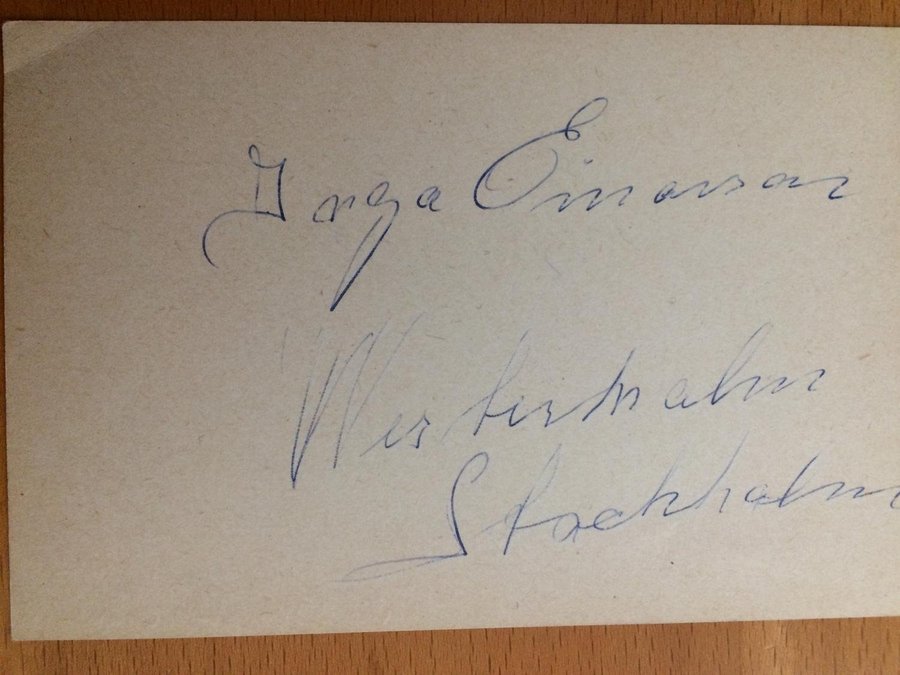 Inga Einarson
Westerholm
Stockholm